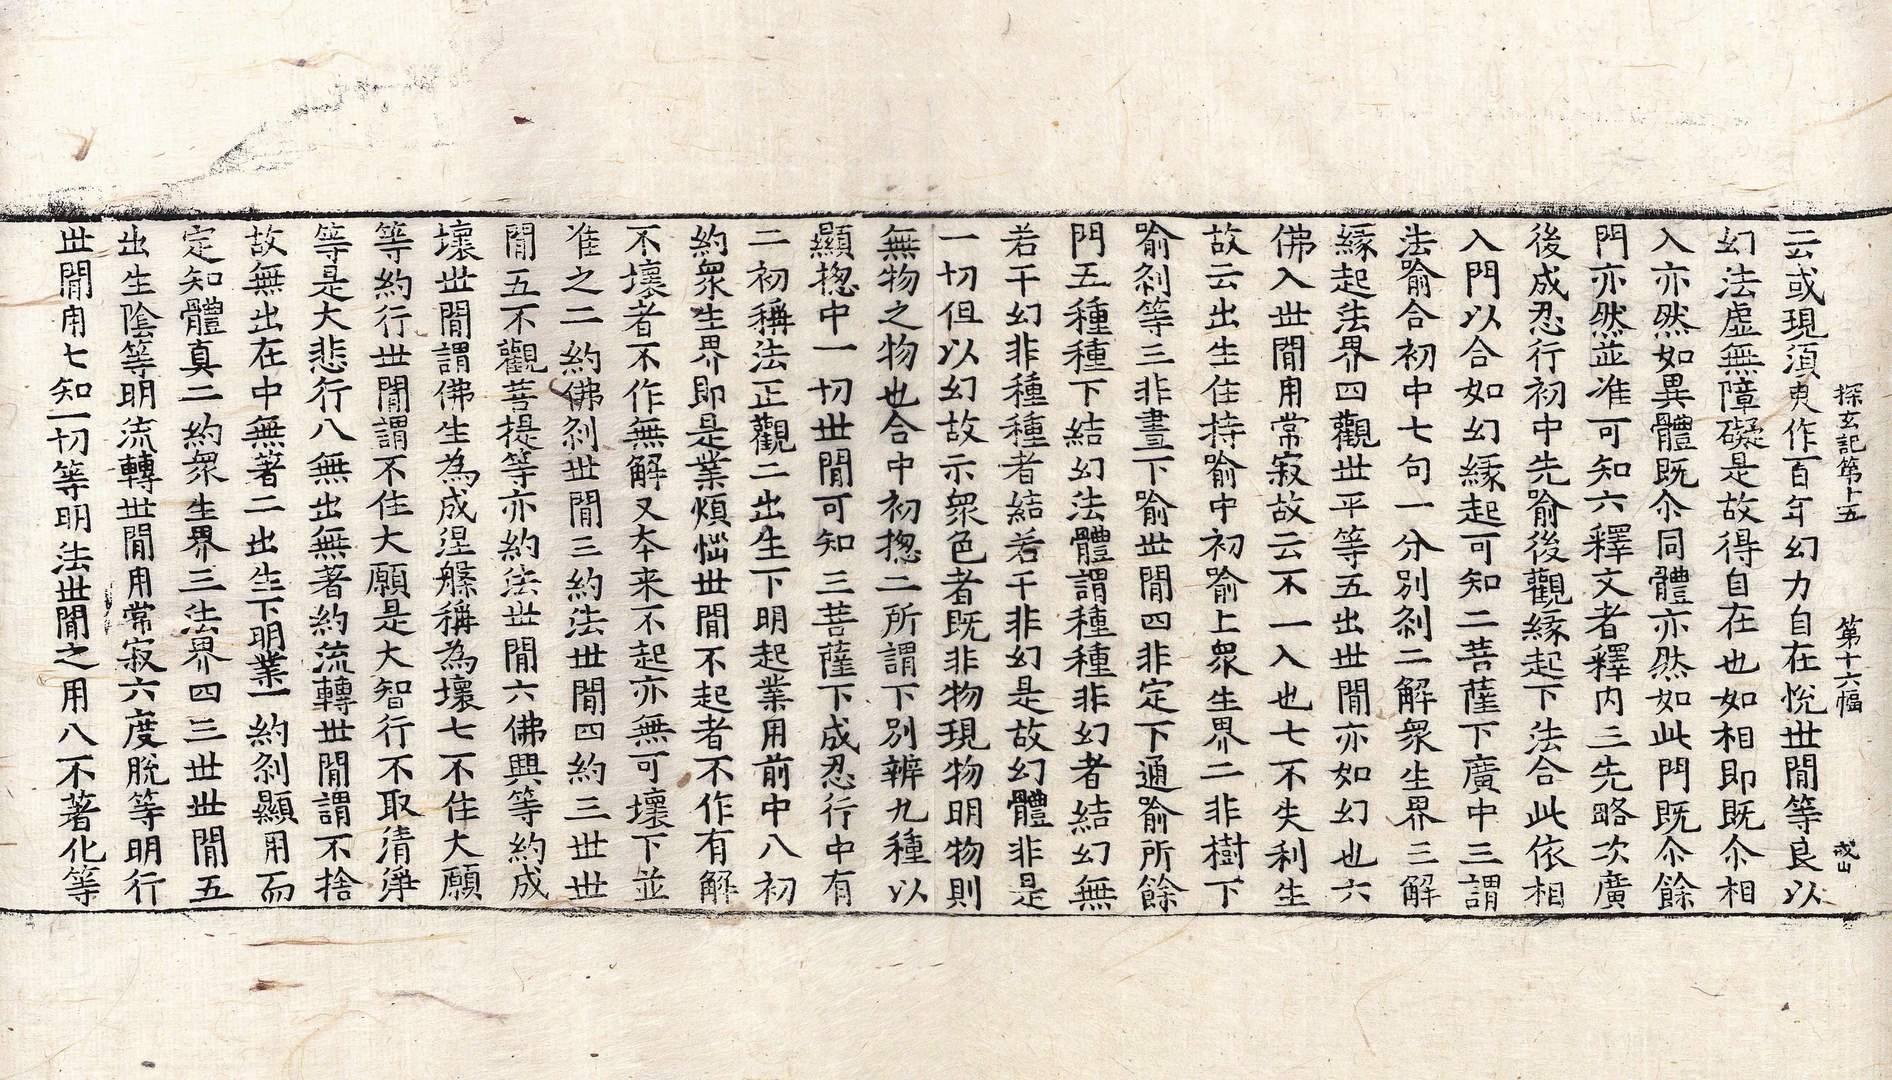 探玄記第十五 第十六幅 戒山
云或現須臾作百年幻力自在悅世間等良以
幻法虛無障礙是故得自在也如相即既尒相
入亦然如異體既尒同體亦然如此門既尒餘
門亦然並准可知六釋文者釋內三先略次廣
後成忍行初中先喻後觀緣起下法合此依相
入門以合如幻緣起可知二菩薩下廣中三謂
法喻合初中七句一分別刹二解眾生界三解
緣起法界四觀世平等五出世間亦如幻也六
佛入世間用常寂故云不一入也七不失利生
故云出生住持喻中初喻上眾生界二非樹下
喻刹等三非晝下喻世間四非定下通喻所餘
門五種種下結幻法體謂種種非幻者結幻無
若干幻非種種者結若干非幻是故幻體非是
一切但以幻故示眾色者既非物現物明物則
無物之物也合中初揔二所謂下別辨九種以
顯揔中一切世間可知三菩薩下成忍行中有
二初稱法正觀二出生下明起業用前中八初
約眾生界即是業煩惱世間不起者不作有解
不壞者不作無解又夲来不起亦無可壞下並
准之二約佛刹世間三約法世間四約三世世
間五不觀菩提等亦約法世間六佛興等約成
壞世間謂佛生為成涅槃稱為壞七不住大願
等約行世間謂不住大願是大智行不取清淨
等是大悲行八無出無著約流轉世間謂不捨
故無出在中無著二出生下明業一約刹顯用而
定知體真二約眾生界三法界四三世世間五
出生陰等明流轉世間用常寂六度脫等明行
世間用七知一切等明法世間之用八不著化等